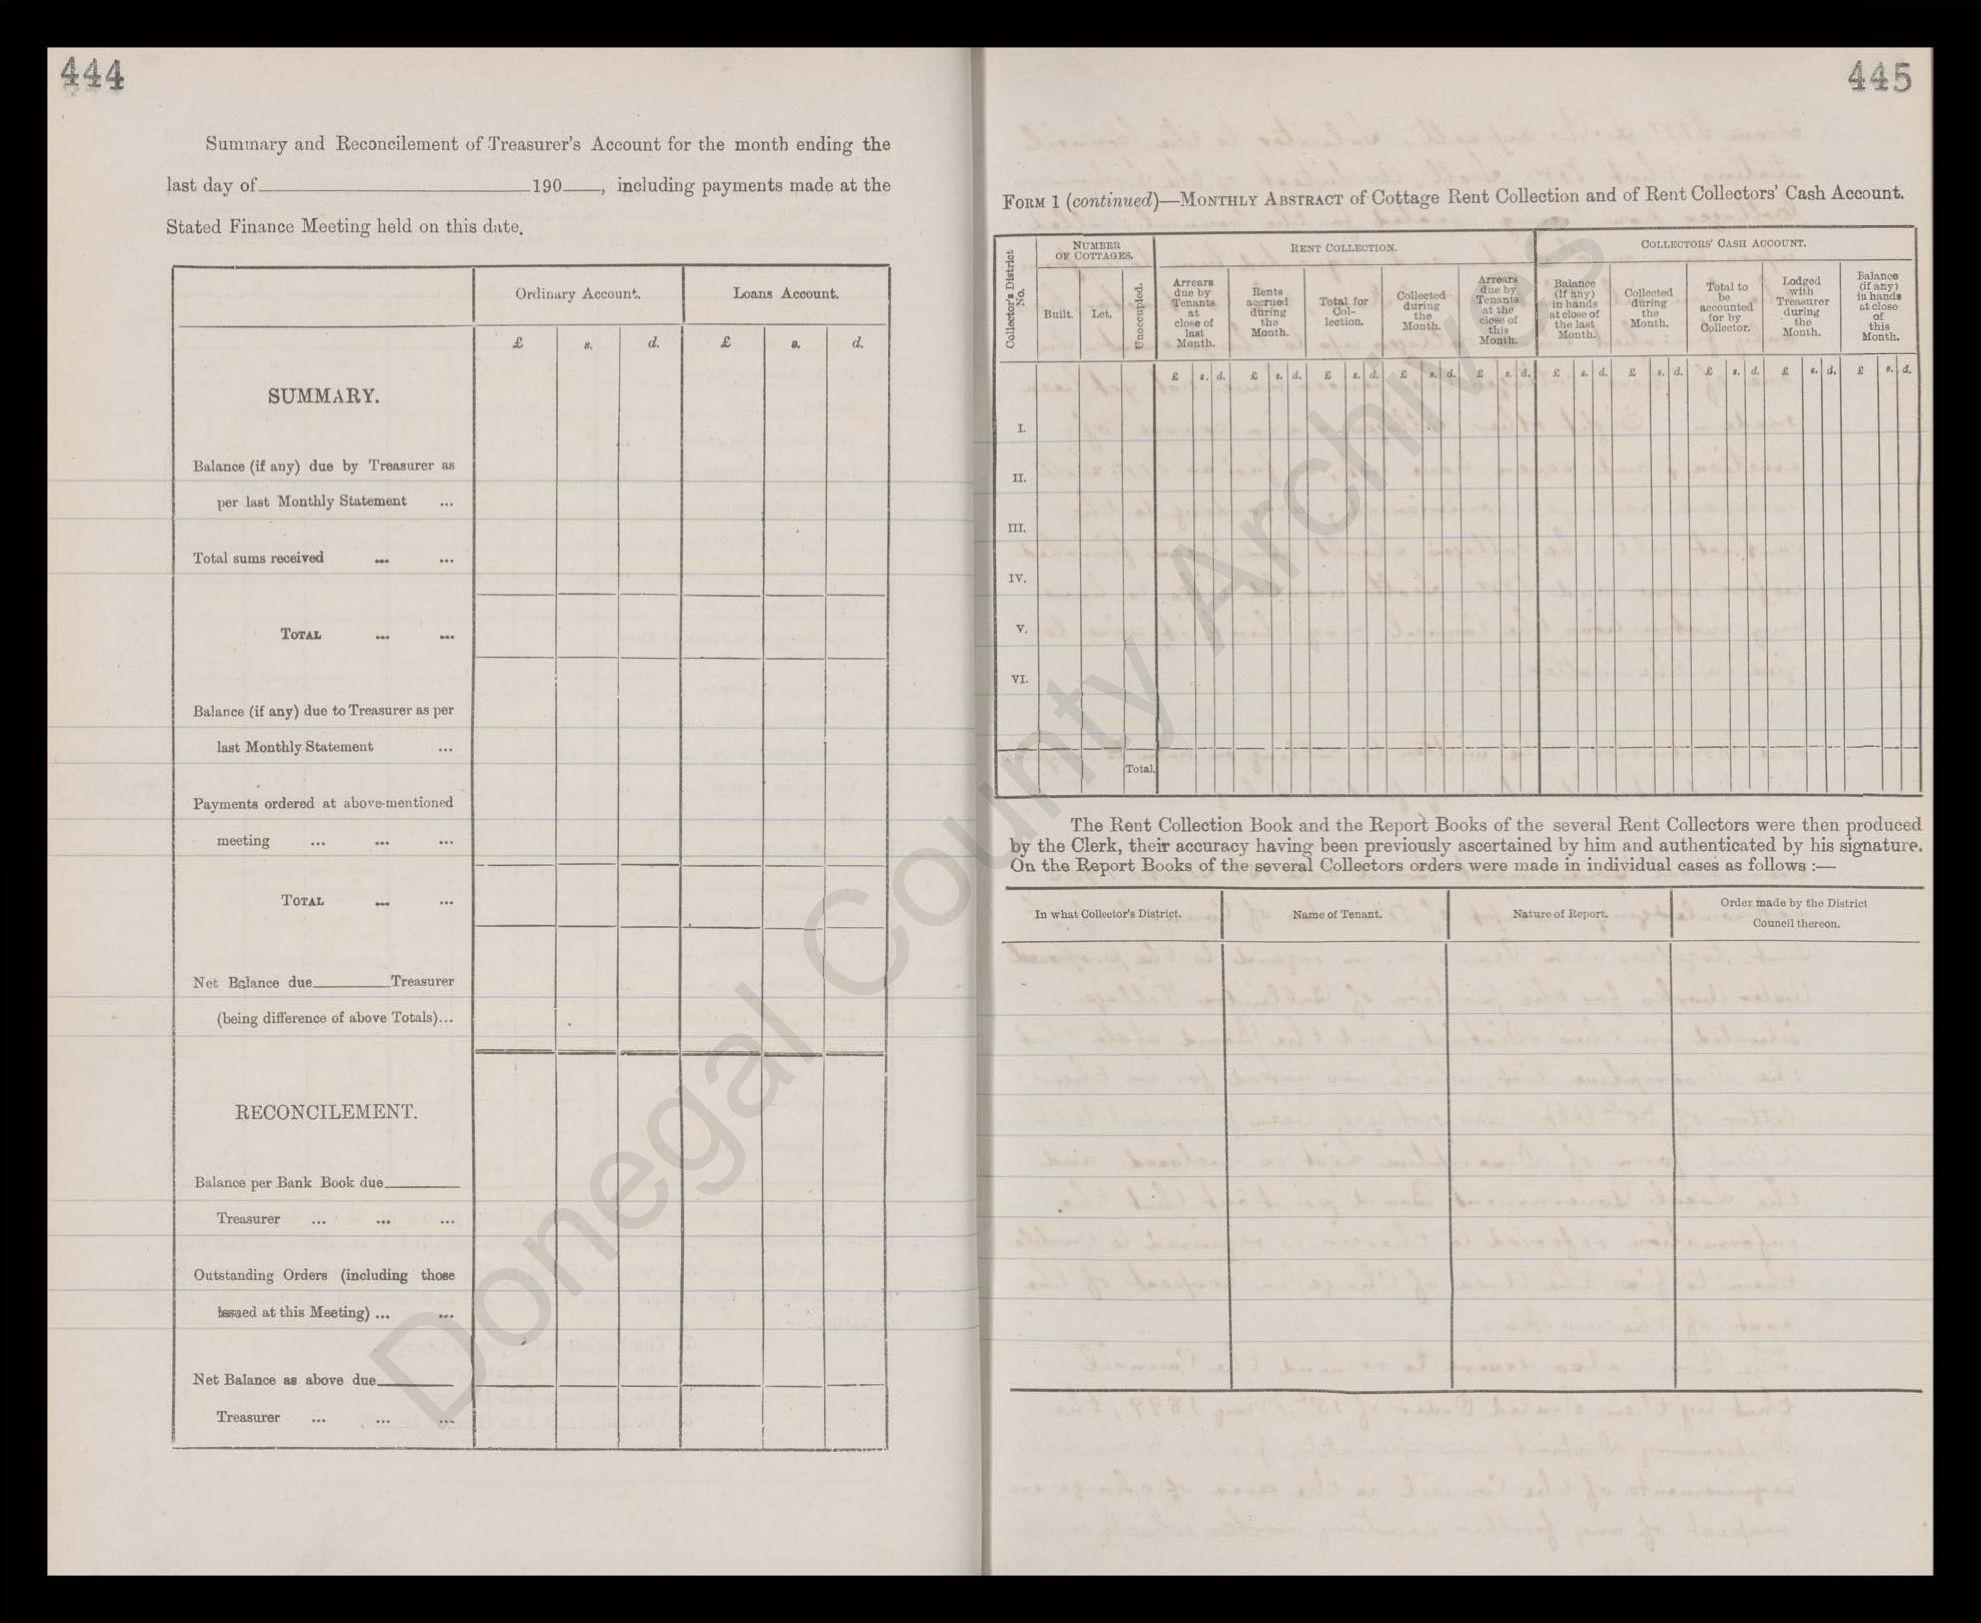 444
Summary and Reconcilement of Treasurer's Account for the month ending the
last day of 190 , including payments made at the
Stated Finance Meeting held on this date.
Ordinary Account. Loans Account.
£ s. d. £ s. d.
SUMMARY.
Balance (if any) due by Treasurer as
per last Monthly Statement ...
Total sums received ... ...
TOTAL ... ...
Balance (if any) due to Treasurer as per
last Monthly Statement ...
Payments ordered at above-mentioned
meeting ... ... ...
TOTAL ... ...
Net Balance due Treasurer
(being difference of above Totals)...
RECONCILEMENT.
Balance per Bank Book due
Treasurer ... ... ...
Outstanding Orders (including those
issued at this Meeting) ... ...
Net Balance as above due
Treasurer ... ... ...
445
FORM 1 (continued)—MONTHLY ABSTRACT of Cottage Rent Collection and of Rent Collectors' Cash Account.
Collector's District
No.
NUMBER
OF COTTAGES.
RENT COLLECTION.
COLLECTORS' CASH ACCOUNT.
Built.
Let.
Unoccupied.
Arrears
due by
Tenants
at
close of
last
Month.
Rents
accrued
during
the
Month.
Total for
Col-
lection.
Collected
during
the
Month.
Arrears
due by
Tenants
at the
close of
this
Month.
Balance
(if any)
in hands
at close of
the last
Month.
Collected
during
the
Month.
Total to
be
accounted
for by
Collector.
Lodged
with
Treasurer
during
the
Month.
Balance
(if any)
in hands
at close
of
this
Month.
£ s. d. £ s. d. £ s. d. £ s. d. £ s. d. £ s. d. £ s. d. £ s. d. £ s. d. £ s. d.
I.
II.
III.
IV.
V.
VI.
Total.
The Rent Collection Book and the Report Books of the several Rent Collectors were then produced
by the Clerk, their accuracy having been previously ascertained by him and authenticated by his signature.
On the Report Books of the several Collectors orders were made in individual cases as follows :—
In what Collector's District.
Name of Tenant.
Nature of Report.
Order made by the District
Council thereon.
Donegal County Archives